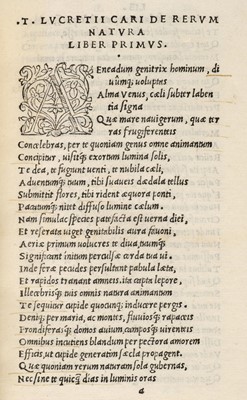 .T. LVCRETII CARI DE RERVM
NATVRA
LIBER PRIMVS.
AEneadum genitrix hominum, di
uumq; uoluptas
Alma Venus, cæli subter laben
tia signa
Quæ mare nauigerum, quæ ter
ras frugiferenteis
Concelebras, per te quoniam genus omne animantum
Concipitur, uisitq; exortum lumina solis,
Te dea, te fugiunt uenti, te nubila cæli,
Aduentumq; tuum, tibi suaueis dædala tellus
Submittit flores, tibi rident æquora ponti,
Pacatumq; nitet diffuso lumine cælum.
Nam simulac species patefacta est uerna diei,
Et reserata uiget genitabilis aura fauoni,
Aeriæ primum uolucres te diua, tuumq;
Significant initum perculsæ corda tua ui.
Inde feræ pecudes persultant pabula læta,
Et rapidos tranant amneis, ita capta lepore,
Illecebrisq; tuis omnis natura animantum
Te sequitur cupide quocunq; inducere pergis.
Deniq; per maria, ac montes, fluuiosq; rapaceis
Frondiferasq; domos auium, camposq; uirenteis
Omnibus incutiens blandum per pectora amorem
Efficis, ut cupide generatim sæcla propagent.
Quæ quoniam rerum naturam sola gubernas,
Nec sine te quicq; dias in luminis oras
a